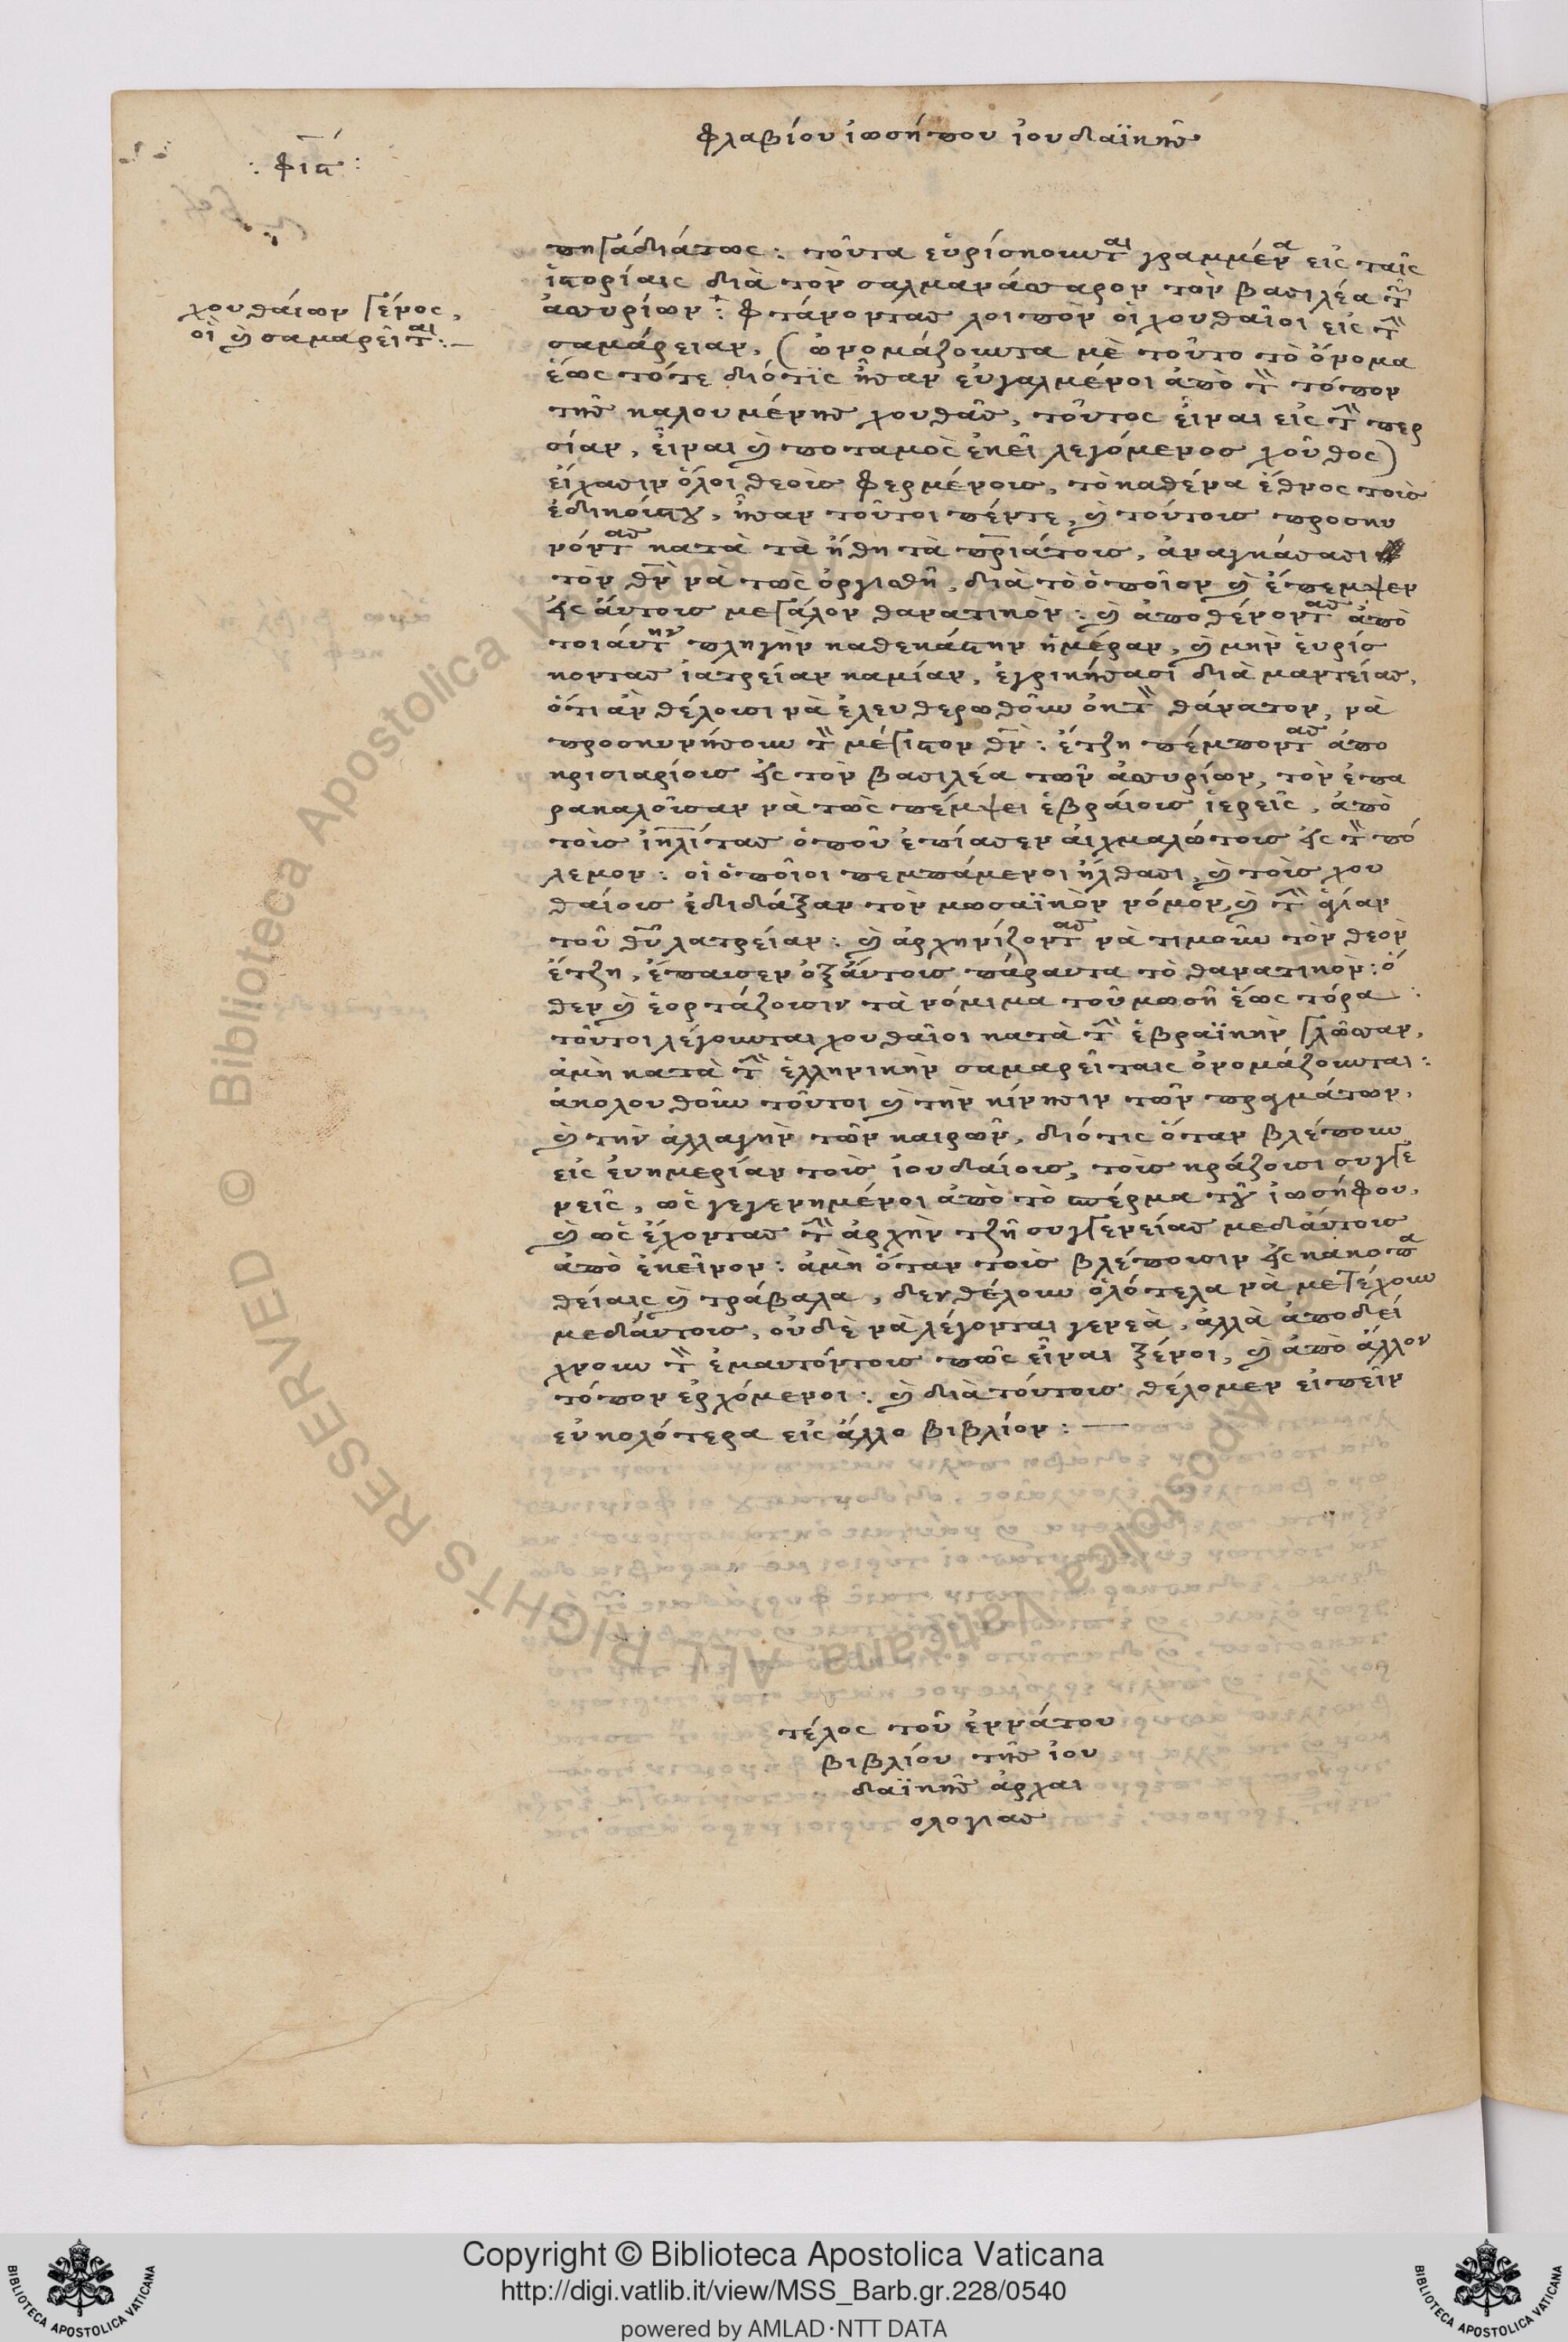 φλαβίου ἰωσήπου ἰουδαϊκῆς
: φια :
χουθαίων γένος,
οἱ καὶ σαμαρεῖται :
πηγάδιάτως : τοῦτα εὑρίσκουνται γραμμένα εἰς ταῖς
ἱστορίαις διὰ τὸν σαλμανάσσαρον τὸν βασιλέα τῶν
ἀσσυρίων : φτάνοντας λοιπὸν οἱ χουθαῖοι εἰς τὴν
σαμάρειαν, (ὠνομάζουντα μὲ τοῦτο τὸ ὄνομα
ἕως τότε διότις ἦσαν εὐγαλμένοι ἀπὸ τὸν τόπον
τῆς καλουμένης χουθᾶς, τοῦτος εἶναι εἰς τὴν περ
σίαν, εἶναι καὶ ποταμὸς ἐκεῖ λεγόμενος χοῦθος)
εἴχασιν ὅλοι θεοὺς φερμένους, τὸ καθένα ἔθνος τοὺς
ἐδικούστου, ἦσαν τοῦτοι πέντε, καὶ τούτους προσκυ
νόντας κατὰ τὰ ἤθη τὰ πριάτους, ἀναγκάσασι
τὸν θν νὰ τοὺς ὀργισθῆ, διὰ τὸ ὁποῖον καὶ ἔπεμψεν
εἰς αὐτους μεγάλον θανατικὸν : καὶ ἀποθένοντας ἀπὸ
τοιαύτην πληγὴν καθεκάστην ἡμέραν, καὶ μὴν εὑρίσ
κοντας ἰατρείαν καμίαν, ἐγρικήσασι διὰ μαντείας,
ὅτι ἂν θέλουσι νὰ ἐλευθερωθοῦν ὀκ τὸν θάνατον, νὰ
προσκυνήσουν τὸν μέγιστον θν : ἔτζη πέμποντας ἀπο
κρισιαρίους εἰς τὸν βασιλέα τῶν ἀσσυρίων, τὸν ἐπα
ρακαλοῦσαν νὰ τοὺς πέμψει ἑβραίους ἱερεῖς, ἀπὸ
τοὺς ἰηλίτας ὁποῦ ἐπίασεν αἰχμαλώτους εἰς τὸν πό
λεμον : οἱ ὁποῖοι πεμπάμενοι ἤλθασι, καὶ τοὺς χου
θαίους ἐδιδάξαν τὸν μωσαϊκὸν νόμον, καὶ τὴν ἁγίαν
τοῦ θῦ λατρείαν : καὶ ἀρχηνίζοντας νὰ τιμοῦν τὸν θεὸν
ἔτζη, ἔπαισεν ὀξαύτους πάραυτα τὸ θανατικὸν : ὅ
θεν καὶ ἑορτάζουσιν τὰ νόμιμα τοῦ μωσῆ ἕως τόρα :
τοῦτοι λέγουνται χουθαῖοι κατὰ τὴν ἑβραϊκὴν γλῶσσαν,
ἀμὴ κατὰ τὴν ἑλληνικὴν σαμαρεῖταις ὀνομάζουνται :
ἀκολουθοῦν τοῦτοι καὶ τὴν κίνησιν τῶν πραγμάτων,
καὶ τὴν ἀλλαγὴν τῶν καιρῶν, διότις ὅταν βλέπουν
εἰς ἐυημερίαν τοὺς ἰουδαίους, τοὺς κράζουσι συγγε
νεῖς, ὡς γεγενημένοι ἀπὸ τὸ σπέρμα τοῦ ἰωσήφου,
καὶ ὡς ἔχοντας τὴν ἀρχὴν τζῆ συγγενείας μεδαύτους
ἀπὸ ἐκεῖνον : ἀμὴ ὅταν τοὺς βλέπουσιν εἰς κακοπα
θείαις καὶ τράβαλα, δεν θέλουν ὁλότελα νὰ μετέχουν
μεδαύτους, οὐδὲ νὰ λέγονται γενεὰ, ἀλλὰ ἀποδεί
χνουν τὸν ἐμαυτόντους πῶς εἶναι ξένοι, καὶ ἀπὸ ἄλλον
τόπον ἐρχόμενοι : καὶ διὰ τούτους θέλομεν εἰπεῖν
εὐκολότερα εἰς ἄλλο βιβλίον :
τέλος τοῦ ἐννάτου
βιβλίου τῆς ἰου
δαϊκῆς ἀρχαι
ολογιας
Biblioteca Apostolica Vaticana ALL RIGHTS RESERVED ©
Copyright © Biblioteca Apostolica Vaticana
http://digi.vatlib.it/view/MSS_Barb.gr.228/0540
powered by AMLAD·NTT DATA
BIBLIOTECA APOSTOLICA VATICANA
BIBLIOTECA APOSTOLICA VATICANA